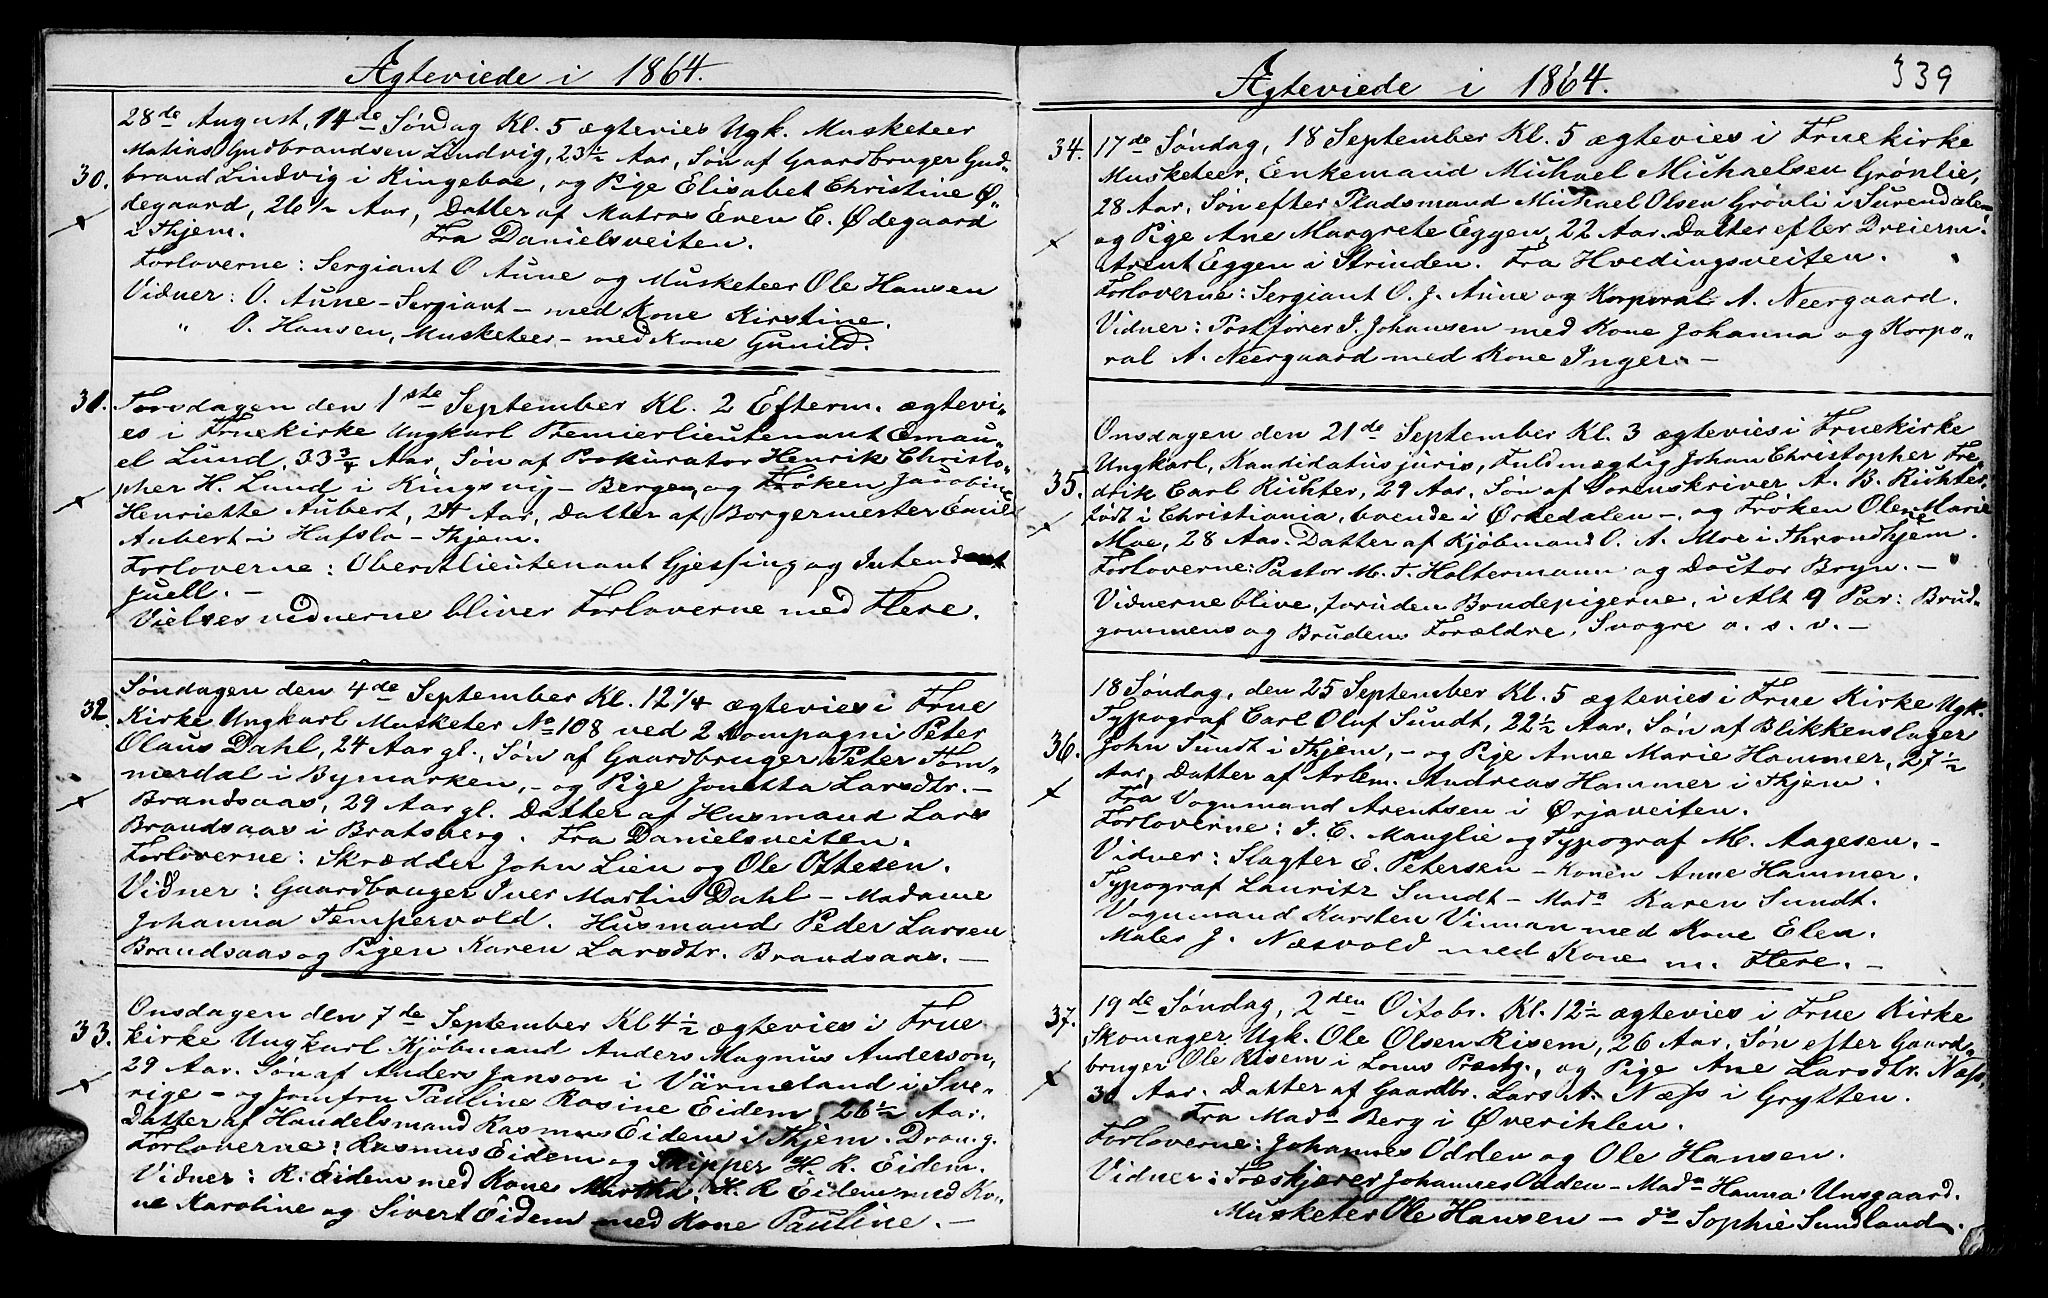 Ægteviede i 1864.
28de August, 14de Søndag Kl. 5 ægtevies Ugk. Musketeer
Matias Gudbrandsen Lindvig, 23½ Aar, Søn af Gaardbruger Gud-
30. brand Lindvig i Ringeboe, og Pige Elisabet Christine Ø-
degaard, 26½ Aar, Datter af Matros Even E. Ødegaard
i Thjem. Fra Danielsveiten.
Forloverne: Sergiant O Aune og Musketeer Ole Hansen
Vidner: O. Aune - Sergiant - med Kone Kirstine.
" O. Hansen, Musketeer - med Kone Gunild.
31. Torsdagen den 1ste September Kl. 2 Efterm. ægtevi-
es i Fruekirke Ungkarl Premierlieutenant Emau-
el Lund, 33¾ Aar, Søn af Prokurator Henrik Christo-
pher H. Lund i Kingsvig - Bergen, og Frøken Jacobine
Henriette Aubert, 24 Aar, Datter af Borgermester Emil
Aubert i Hafslo - Thjem.
Forloverne: Oberstlieutenant Gjessing og Intendant
Juell. -
Vielsesvidnerne bliver Forloverne med Flere.
Søndagen den 4de September Kl. 12¼ ægtevies i Frue
32. Kirke Ungkarl Musketer No 108 ved 2 Kompagni Peter
Olaus Dahl, 24 Aar gl., Søn af Gaardbruger Peter Tom-
merdal i Bymarken, - og Pige Jonetta Larsdtr. -
Brandsaas, 29 Aar gl. Datter af Husmand Lars
Brandsaas i Bratsberg. Fra Danielsveiten.
Forloverne: Skrædder John Lien og Ole Ottesen.
Vidner: Gaardbruger Iver Martin Dahl - Madame
Johanna Tempervold. Husmand Peder Larsen
Brandsaas og Pigen Karen Larsdtr. Brandsaas. -
Onsdagen den 7de September Kl 4½ ægtevies i Frue
33. kirke Ungkarl Kjøbmand Anders Magnus Anderson,
29 Aar. Søn af Anders Janson i Värmeland i Sve-
rige - og Jomfru Pauline Rasine Eidem, 26½ Aar.
Datter af Handelsmand Rasmus Eidem i Thjem. Dron. g.
Forloverne: Rasmus Eidem og Skipper H. R. Eidem.
Vidner: R. Eidem med Kone Martha, H. R Eidem med Ko-
ne Karoline og Sivert Eidem med Kone Pauline. -
Ægteviede i 1864. 339
34. 17de Søndag, 18 September Kl. 5 ægtevies i Fruekirke
Musketeer, Enkemand Michael Michaelsen Grønlie,
28 Aar, Søn efter Pladsmand Michael Olsen Grønli i Surendalen
og Pige Ane Margrete Eggen, 22 Aar. Datter efter Dreierm.
Arent Eggen i Strinden. Fra Hvedingsveiten.
Forloverne: Sergiant O. J. Aune og Korporal A. Neergaard.
Vidner: Postfører J. Johansen med Kone Johanna og Korpo-
ral A. Neergaard med Kone Inger. -
Onsdagen den 21de September Kl. 3 ægtevies i Fruekirke
Ungkarl, Kandidatus juris, Fuldmægtig Johan Christopher Fre-
35. drik Carl Richter, 29 Aar, Søn af Sorenskriver A. B. Richter,
født i Christiania, boende i Ørkedalen -, og Frøken Olene Marie
Moe, 28 Aar. Datter af Kjøbmand O. A. Moe i Throndhjem.
Forloverne: Pastor M. T. Holtermann og Doctor Bryn. -
Vidnerne blive, foruden Brudepigerne, i Alt 9 Par: Brud-
gommens og Brudens Forældre, Svogre o. s. v. -
18 Søndag, den 25 September Kl. 5 ægtevies i Frue Kirke Ugk.
Typograf Carl Oluf Sundt, 22½ Aar, Søn af Blikkenslager
36. John Sundt i Thjem, - og Pige Anne Marie Hammer, 27½
Aar, Datter af Arbm. Andreas Hammer i Thjem.
Fra Vognmand Arentsen i Ørjaveiten.
Forloverne: J. C. Manglie og Typograf M. Aagesen. -
Vidner: Slagter E. Petersen - Konen Anne Hammer.
Typograf Lauritz Sundt - Mada Karen Sundt.
Vognmand Karsten Vinnan med Kone Elen.
Maler J. Næsvold med Kone m. Flere. -
37. 19de Søndag, 2den Octobr. Kl. 12½ ægtevies i Frue Kirke
Skomager Ugk. Ole Olsen Risem, 26 Aar, Søn efter Gaard-
bruger Ole Risem i Loms Præstg., og Pige Ane Larsdtr. Næss,
30 Aar. Datter af Gaardbr. Lars A. Næss i Grytten.
Fra Mada Berg i Øverihlen.
Forloverne: Johannes Odden og Ole Hansen.
Vidner: Træskjærer Johannes Odden - Mada Hanna Unsgaard.
Musketer Ole Hansen - do Sophie Sundland.